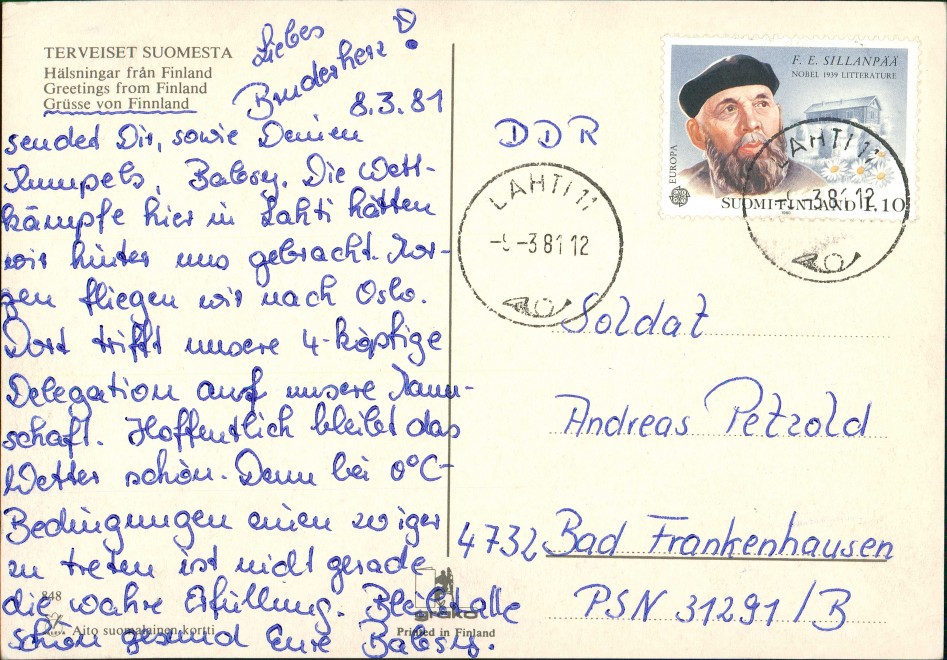 TERVEISET SUOMESTA
Hälsningar från Finland
Greetings from Finland
Grüsse von Finnland
Liebes
Bruderherz!
8.3.81
sended Dir, sowie Deinen
Kumpels, Babsy. Die Wett-
kämpfe hier in Lahti hätten
wir hinter uns gebracht. Mor-
gen fliegen wir nach Oslo.
Dort trifft unsere 4-köpfige
Delegation auf unsere Mann-
schaft. Hoffentlich bleibt das
Wetter schön. Denn bei 0°C-
Bedingungen einen
zu treten ist nicht gerade
die wahre Erfüllung. Bleibt alle
schön gesund Eure Babsy.
848
Aito suomalainen kortti
Printed in Finland
DDR
F. E. SILLANPÄÄ
NOBEL 1939 LITTERATURE
EUROPA
SUOMI-FINLAND 1,10
LAHTI 11
-3.81 12
LAHTI 11
-3.81 12
Soldat
Andreas Petzold
4732 Bad Frankenhausen
PSN 31291/B